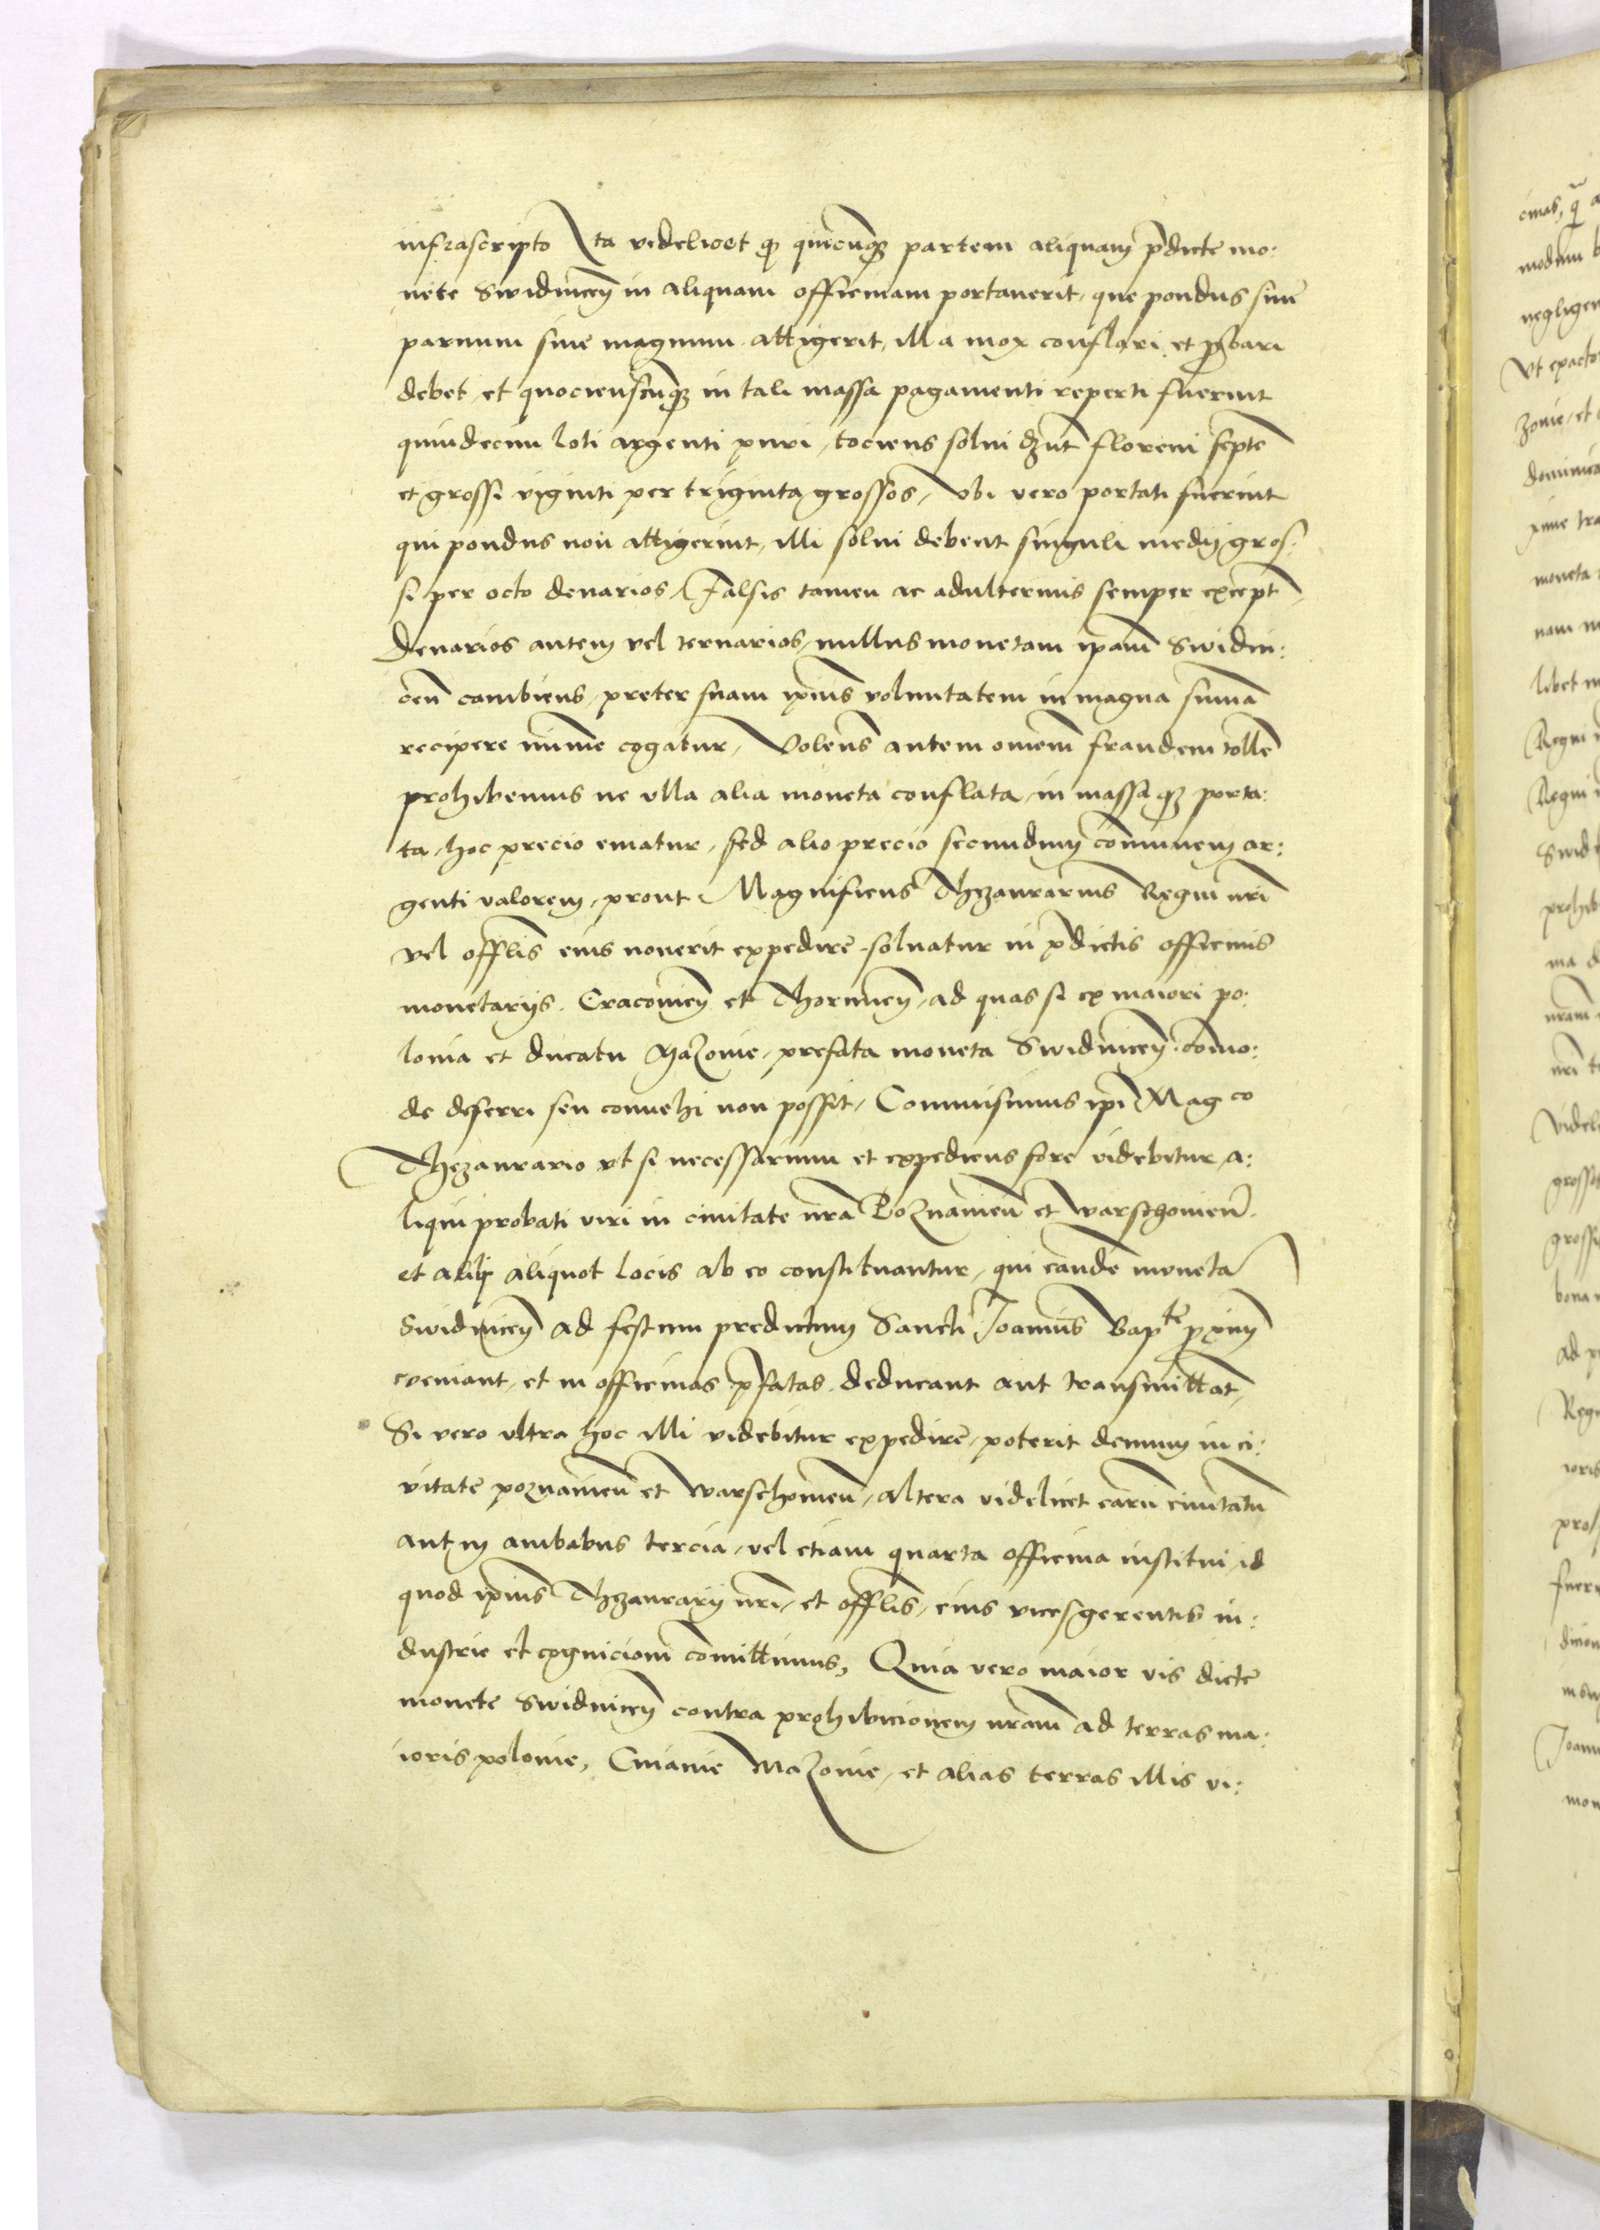 infrascripto Ita videlicet qꝫ quicunqꝫ partem aliquam p̄dicte mo:
nete Swidniceñ in aliquam officinam portauerit, que pondus siue
paruum siue magnum attigerit, illa mox conflari et ꝓbari
debet et quocienscunqꝫ in tali massa pagamenti reperti fuerint
quindecim loti argenti puri, tociens solui dẽnt floreni septẽ
et grossi viginti per triginta grossos, vbi vero portati fuerint
qui pondus non attigerint, illi solui debent singuli medij gros:
si per octo denarios, Falsis tamen ac adulterinis semper except̃,
Denarios autem vel ternarios, nullus monetam ip̃am Swidni:
ceñ cambiens, preter suam ip̃ius voluntatem in magna sum̃a
recipere minime cogatur, Volens autem omnem fraudem tollẽ
prohibemus ne vlla alia moneta conflata, in massa qꝫ porta:
ta, hoc precio ematur, sed alio precio secundum com̃unem ar:
genti valorem, prout Magnificus Thezaurarius Regni nr̃i
vel offl̃is eius nouerit expedire, soluatur in p̄dictis officinis
monetarijs. Cracouieñ et Thorunieñ, ad quas si ex maiori po:
lonia et ducatu Mazouie, prefata moneta Swidniceñ com̃o:
de deferri seu conuehi non possit, Commisimus ip̃i Magco
Thezaurario vt si necessarium et expediens fore videbitur, a:
liqui probati viri in ciuitate nr̃a Poznanieñ et Warschouieñ.
et alijs aliquot locis ab eo constituantur, qui eandẽ monetã
Swidniceñ ad festum predictum Sancti Joannis Bapte ꝓximũ
coemant, et in officinas p̄fatas deducant aut transmittãt,
Si vero vltra hoc illi videbitur expedire, poterit demum in ci:
vitate poznanieñ et Warschouieñ, altera videlicet earũ ciuitatũ
aut in ambabus tercia, vel etiam quarta officina institui, id
quod ip̃ius Thezaurarij nr̃i, et offl̃is, eius vices gerentis in:
dustrie et cognicioni com̃ittimus, Quia vero maior vis dicte
monete Swidniceñ contra prohibicionem nr̃am ad terras ma:
ioris polonie, Cuiauie Mazouie, et alias terras illis vi: